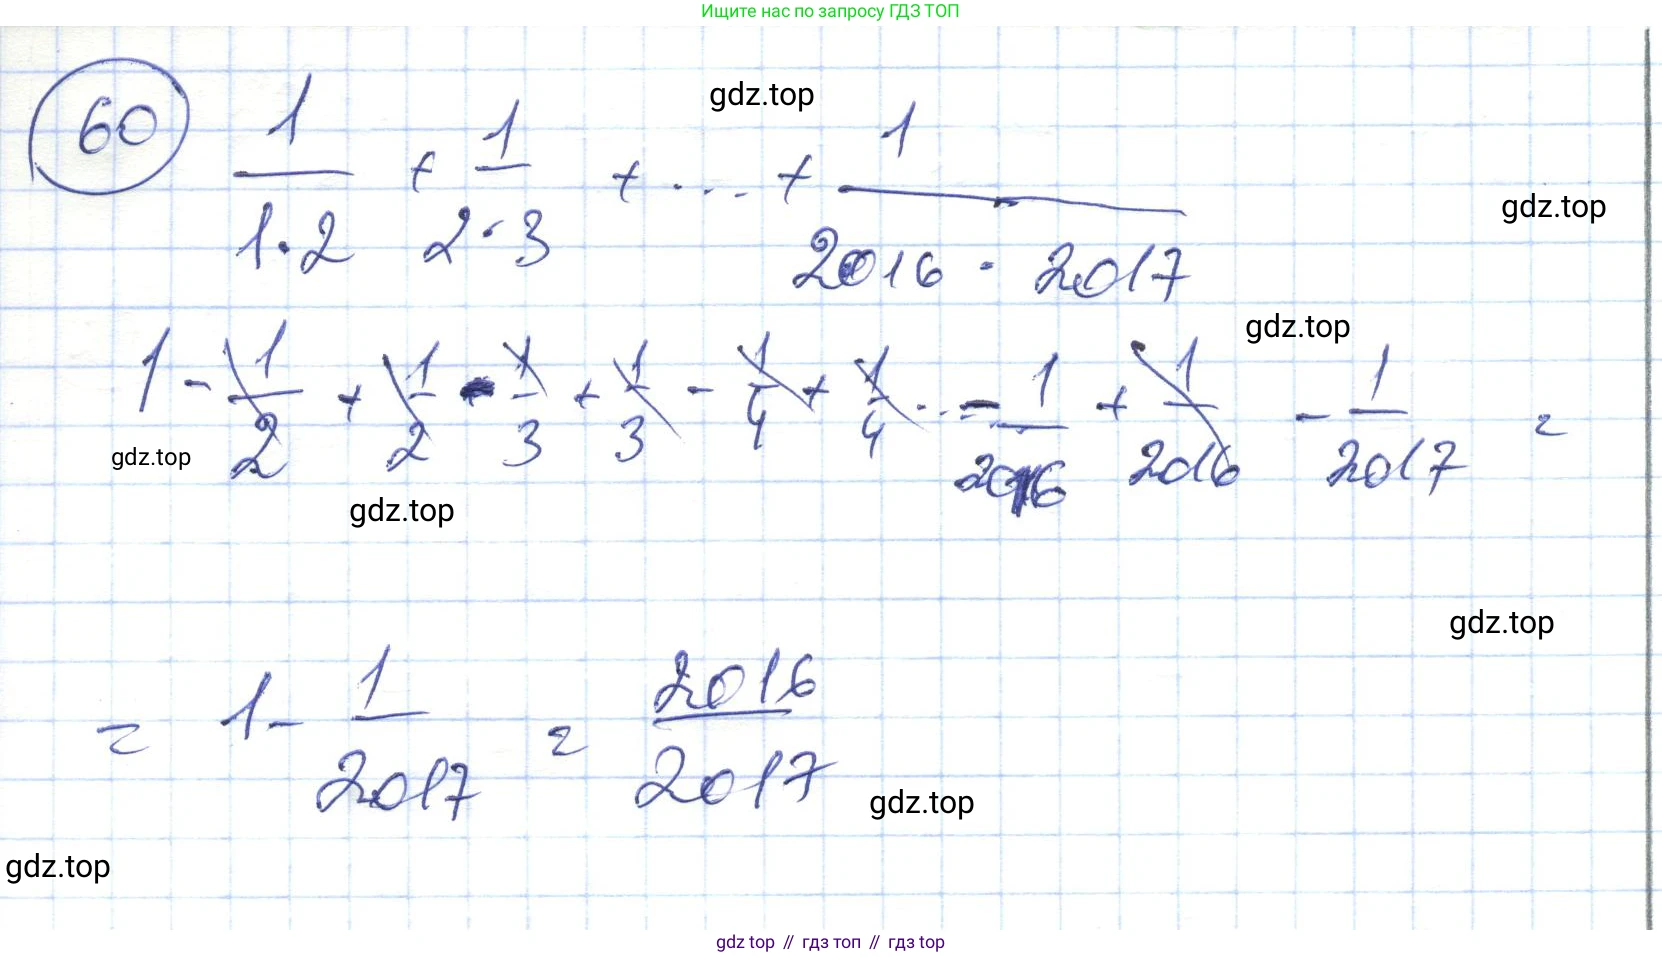 Ищите нас по запросу ГДЗ ТОП
gdz.top
60 1/(1·2) + 1/(2·3) + ... + 1/(2016 · 2017)
gdz.top
gdz.top
1 - 1/2 + 1/2 - 1/3 + 1/3 - 1/4 + 1/4 ... - 1/2016 + 1/2016 - 1/2017 =
gdz.top
gdz.top
gdz.top
= 1 - 1/2017 = 2016/2017
gdz.top
gdz.top
gdz top // гдз топ // гдз top